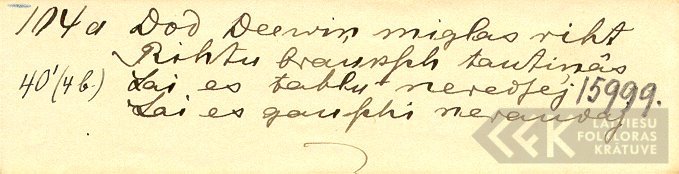 104a Dod Deewiņ miglas riht
Rihtu braukſch tautinâs
40'(4b.) Lai es tahlu neredſej 15999.
Lai es gauſchi neraudaj
LATVIEŠU
FOLKLORAS
KRĀTUVE